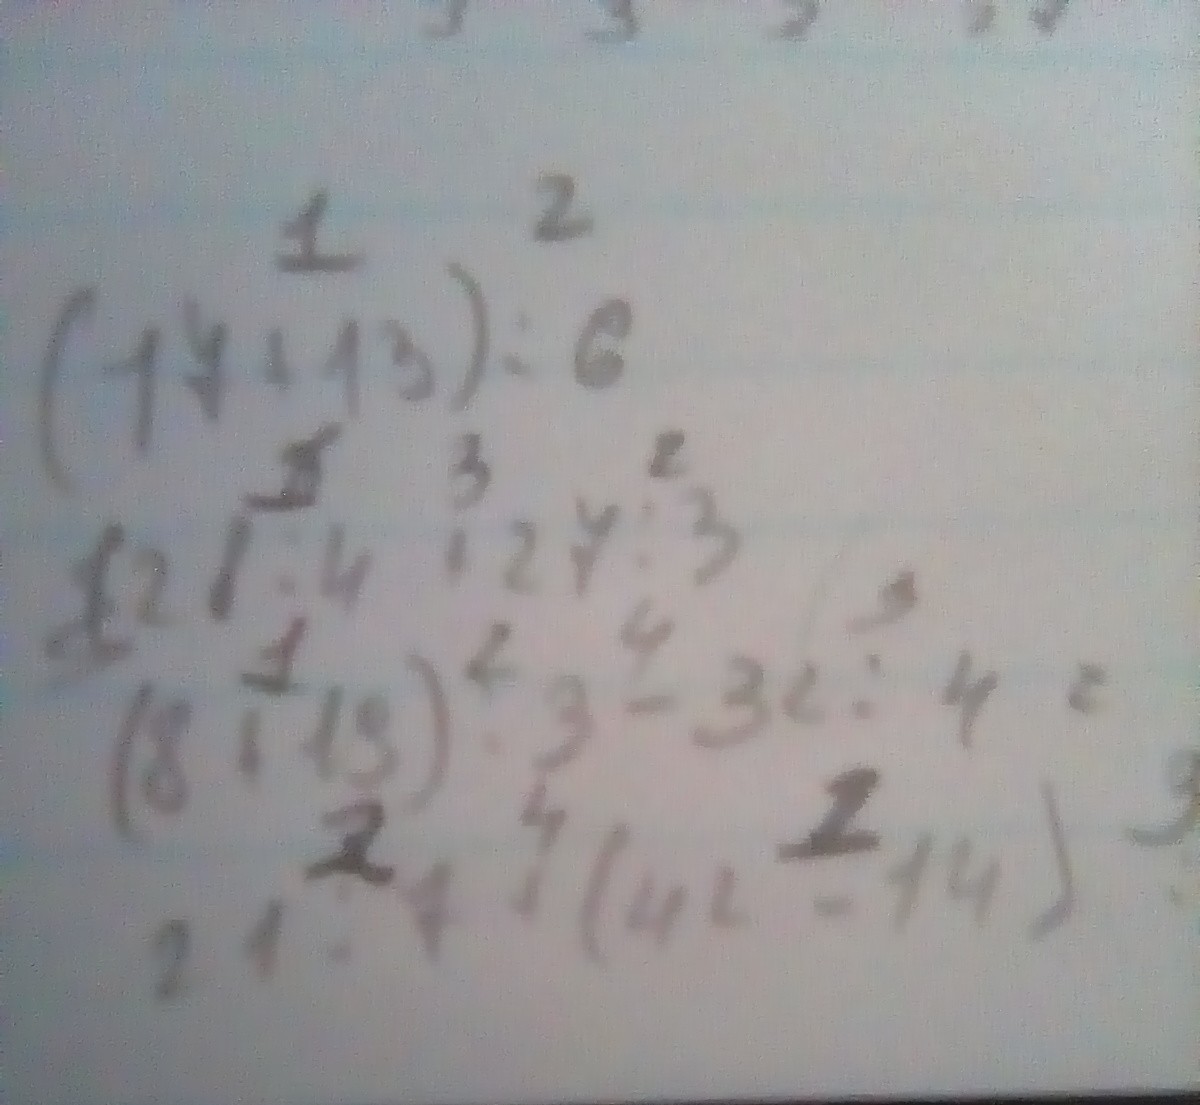 1 2
(17+13):6
1 3 2
:4 +27:3
1 2 4 3
(8+19):3-32:4=
2 4 1 3
21:7+(42-14):